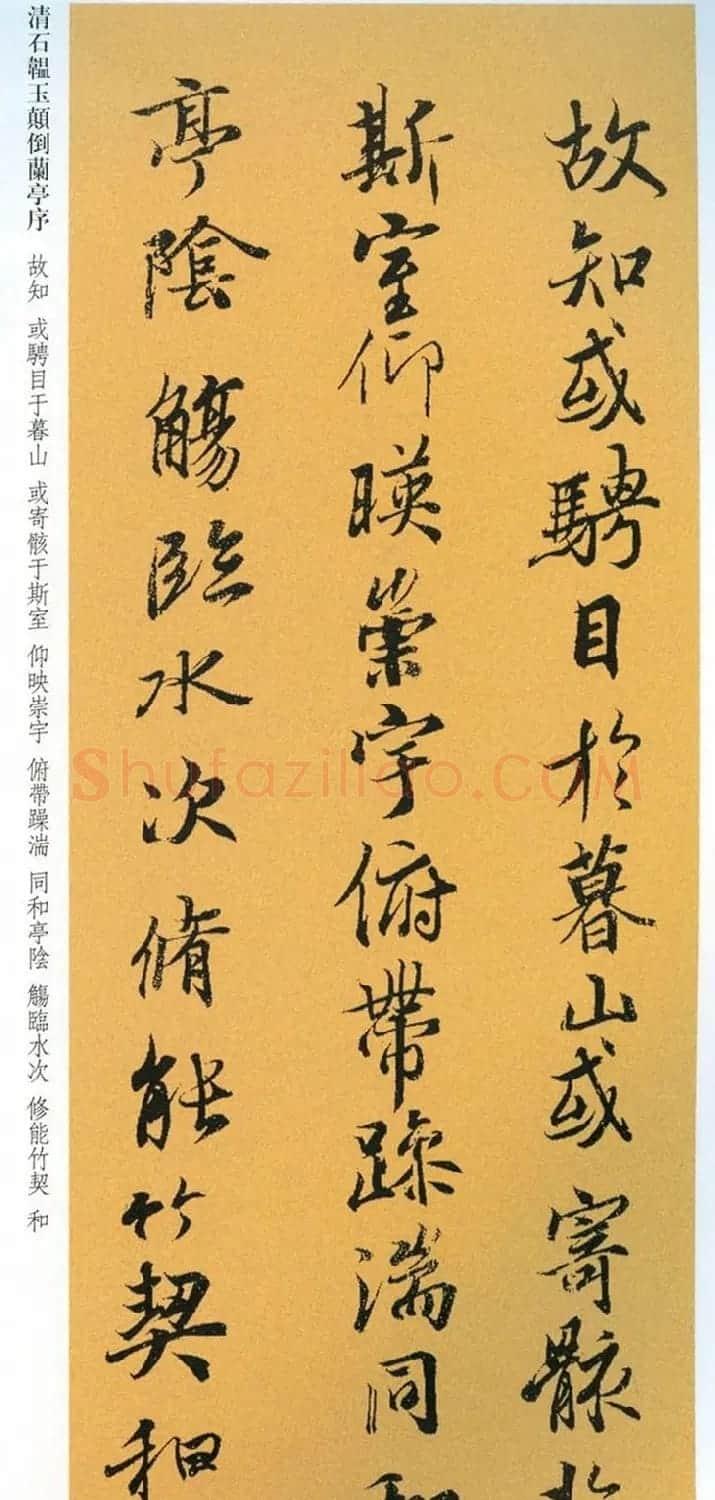 故知或騁目於暮山或寄骸於
斯室仰暎崇宇俯帶躁湍同和
亭陰觴臨水次脩能竹契和
清石韞玉顛倒蘭亭序 故知 或騁目于暮山 或寄骸于斯室 仰映崇宇 俯帶躁湍 同和亭陰 觴臨水次 修能竹契 和
Shufaziliao.COM